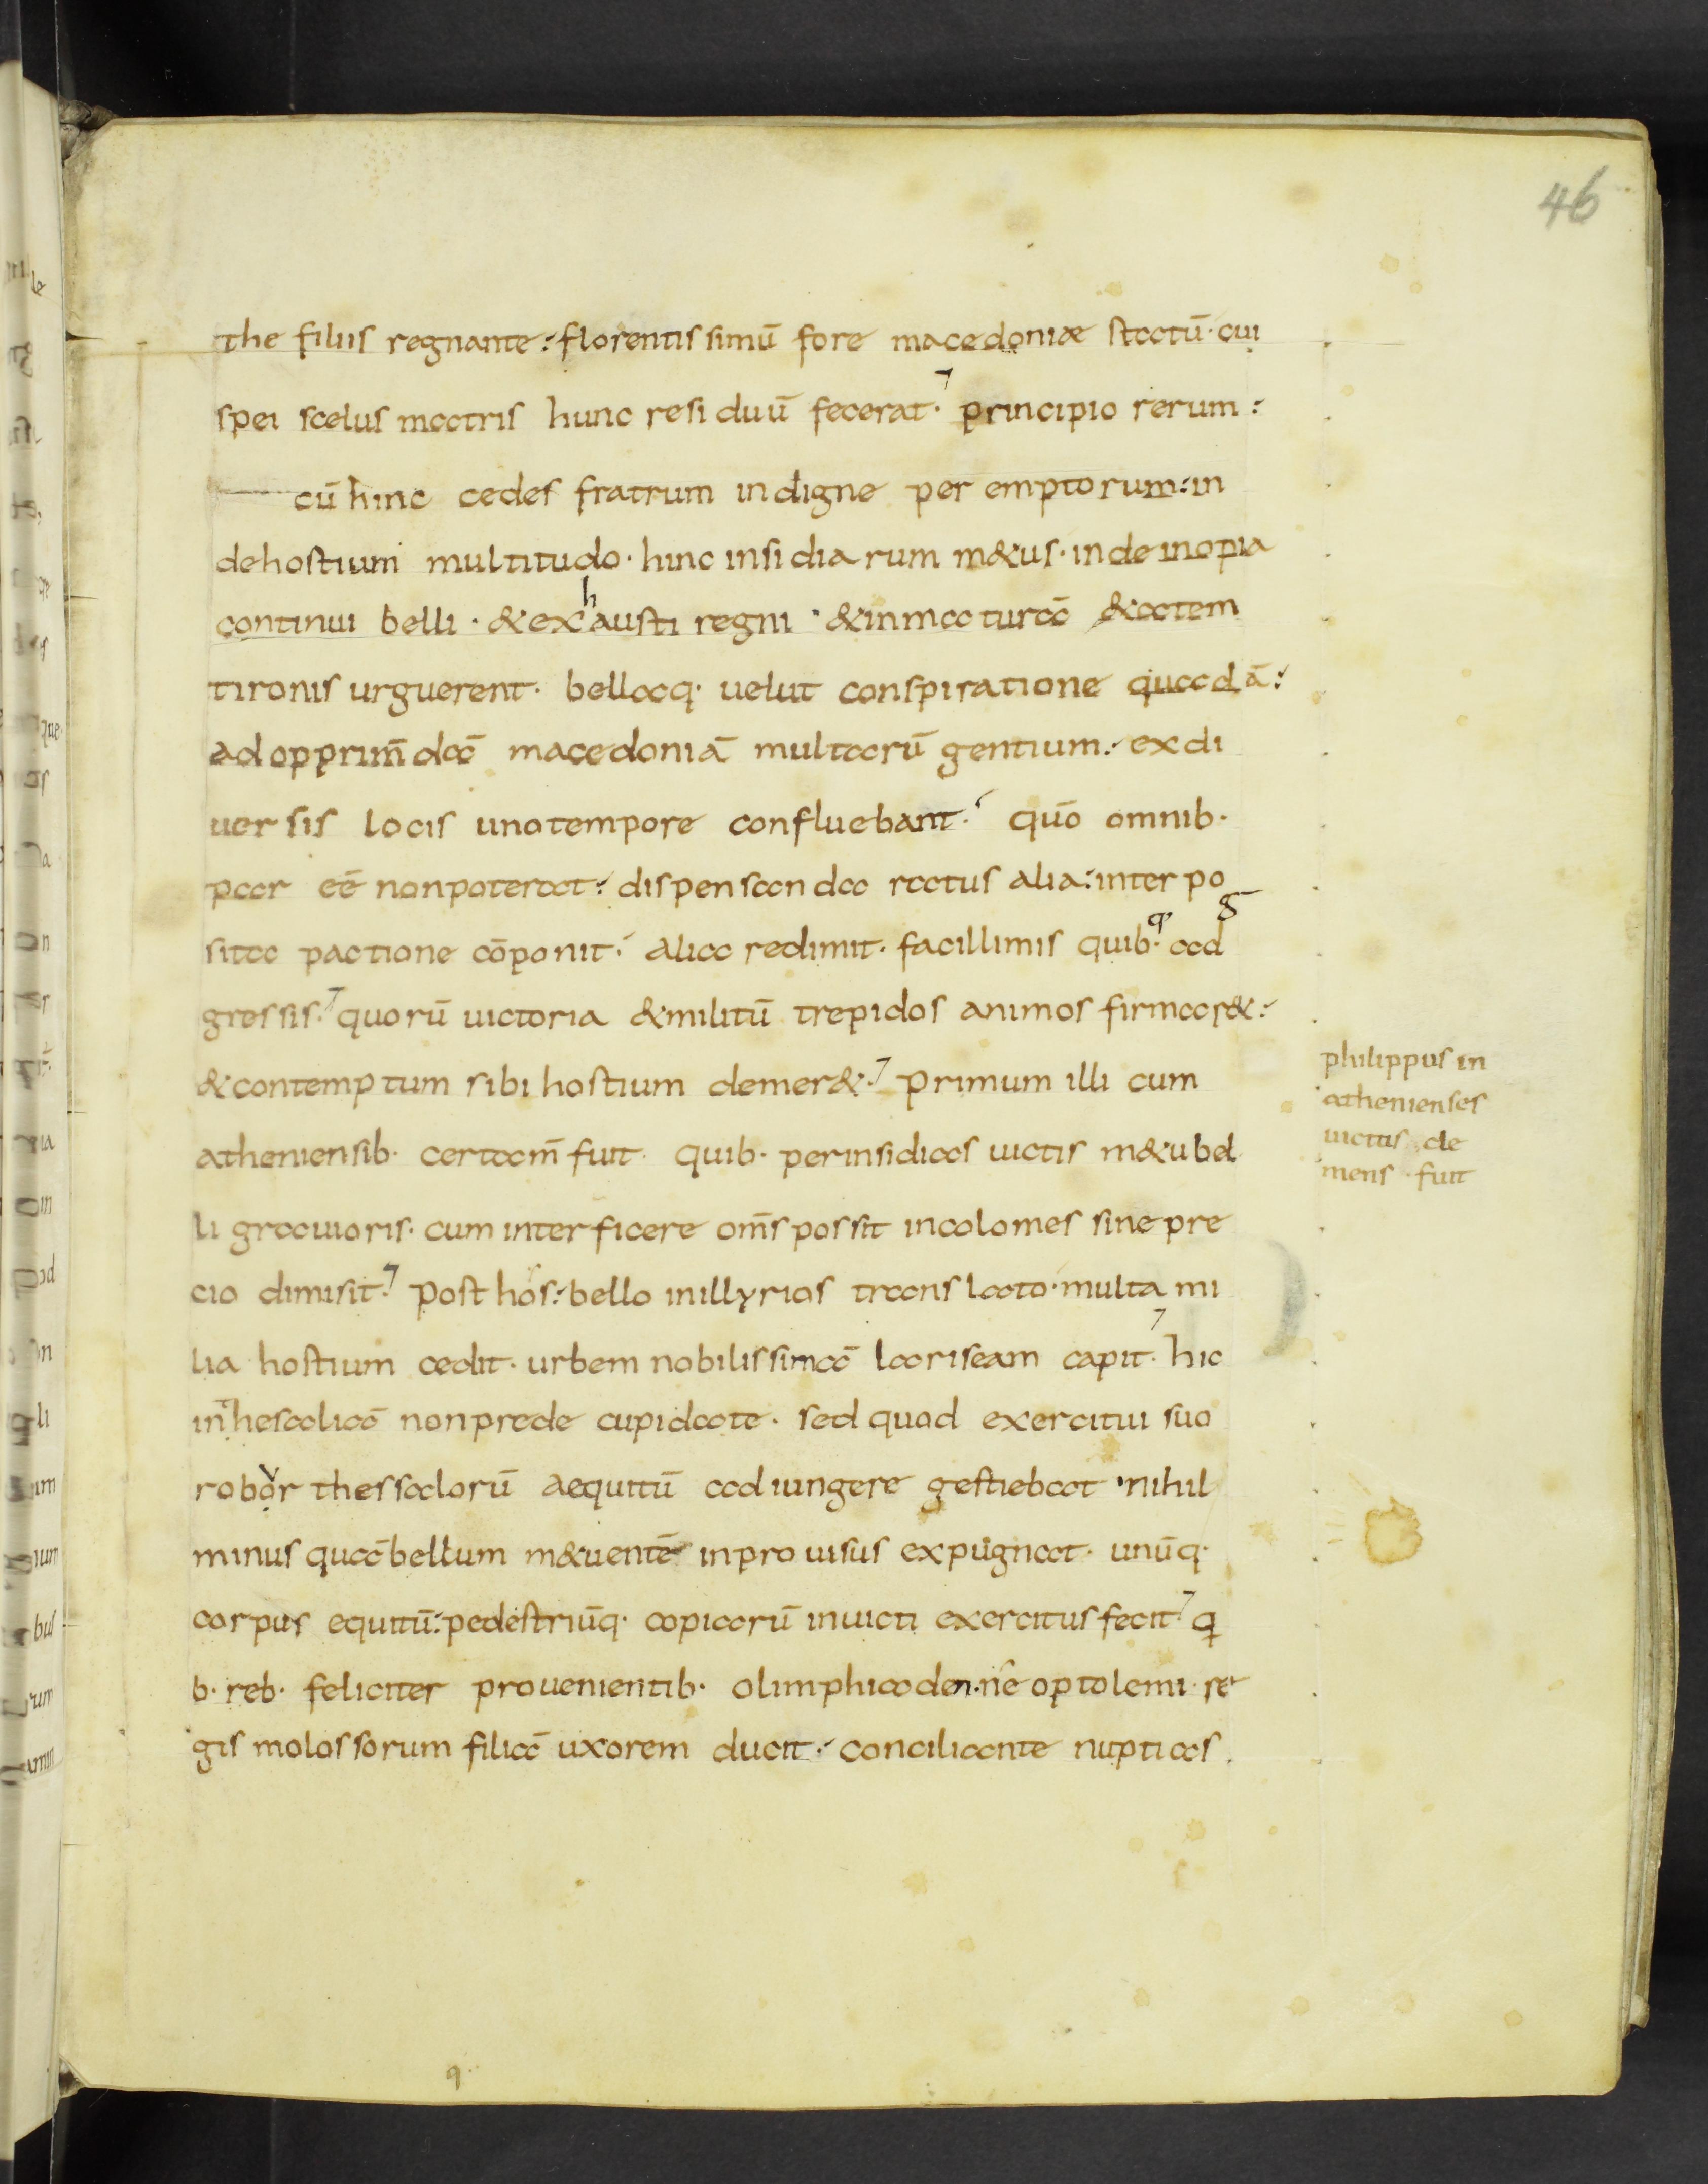 46
the filiis regnante: florentissimū fore macedoniæ statū· cui
spei scelus matris hunc residuū fecerat· principio rerum:
cū hinc cedes fratrum indigne peremptorum: in
de hostium multitudo· hinc insidiarum m&us· inde inopia
continui belli· & exhausti regni· & inmaturā & atem
tironis urguerent· bellaq· uelut conspiratione quadā:
ad opprim̄dā macedoniā multarū gentium: ex di
uersis locis uno tempore confluebant· qūo omnib·
par eē non poterat: dispensanda ratus alia: interpo
sita pactione cōponit· alia redimit· facillimis quib·q· adg
gressis· quorū uictoria & militū trepidos animos firmar&:
& contemptum sibi hostium demer&· primum illi cum
atheniensib· certam̄ fuit· quib· per insidias uictis m&u bel
li grauioris· cum interficere om̄s possit incolomes sine pre
cio dimisit· post hos: bello in illyrios translato· multa mi
lia hostium cedit· urbem nobilissimā lariseam capit· hic
in thesalicā non prede cupidate· sed quod exercitui suo
robor thessalorū aequitū adiungere gestiebat· nihil
minus quā bellum m&uentē inprouisus expugnat· unūq·
corpus equitū: pedestriūq· copiarū inuicti exercitus fecit· q
b· reb· feliciter prouenientib· olimphiaden· nē optolemi re
gis molossorum filiā uxorem ducit· conciliante nuptias
philippus in
athenienses
uictus cle
mens fuit
q·